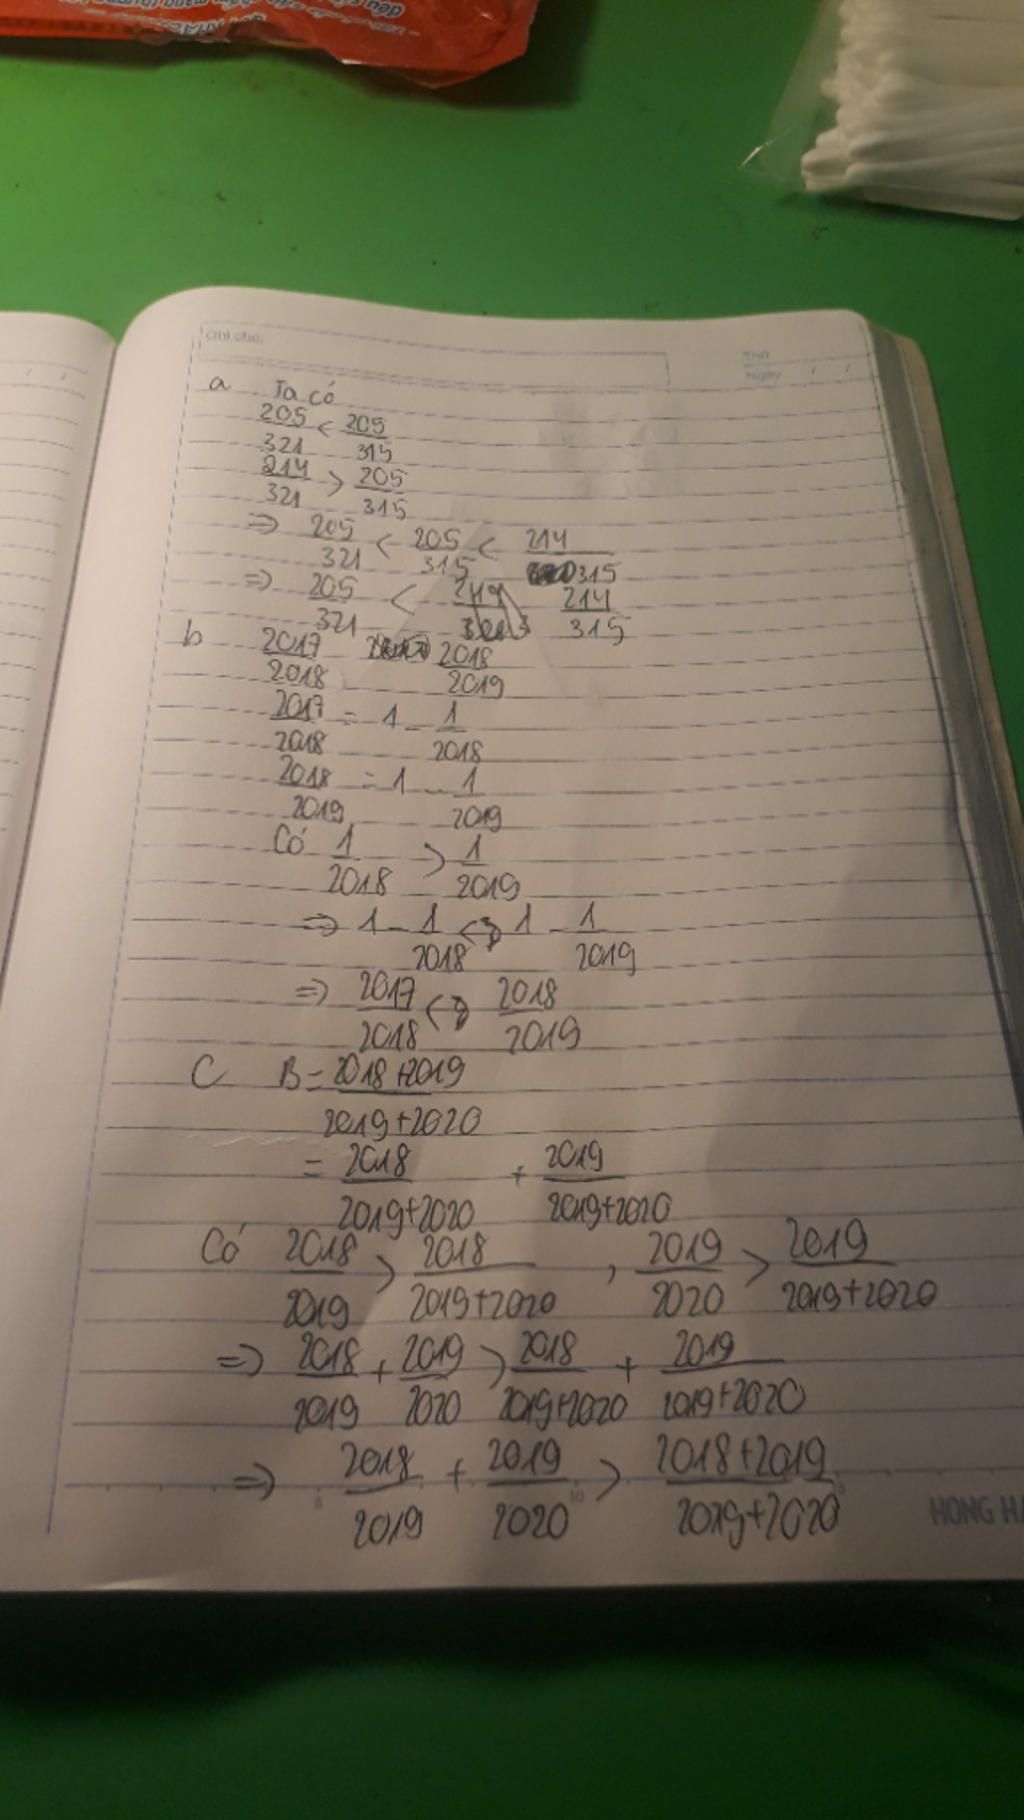 Ghi chú:
Thứ
Ngày / /
a Ta có
205/321 < 205/315
214/321 > 205/315
=> 205/321 < 205/315 < 214/315
=> 205/321 < 214/315
b 2017/2018 2018/2019
2017/2018 = 1 - 1/2018
2018/2019 = 1 - 1/2019
Có 1/2018 > 1/2019
=> 1 - 1/2018 < 1 - 1/2019
=> 2017/2018 < 2018/2019
C B = 2018+2019/2019+2020
= 2018/2019+2020 + 2019/2019+2020
Có 2018/2019 > 2018/2019+2020 , 2019/2020 > 2019/2019+2020
=> 2018/2019 + 2019/2020 > 2018/2019+2020 + 2019/2019+2020
=> 2018/2019 + 2019/2020 > 2018+2019/2019+2020
HONG HA